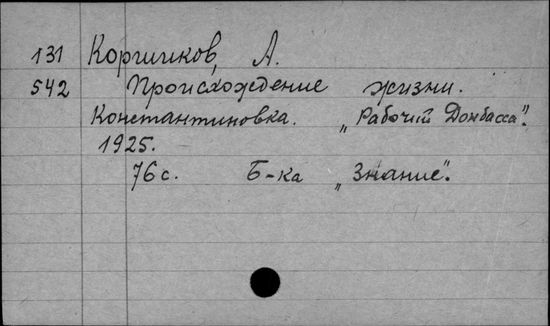 131 Коршиков, А.
542 Происхождение жизни.
Константиновка. „Рабочий Донбасса".
1925.
76 с. Б-ка „Знание".